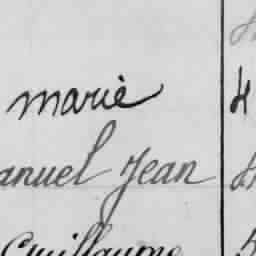 marie 4
anuel Jean
Guillaume